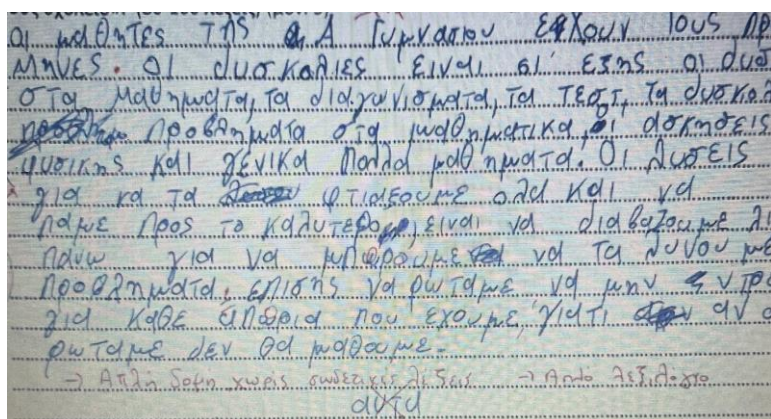 οι μαθητες της Α Γυμνασιου έχουν 1ους προ
μηνες. Οι δυσκολιες ειναι οι εξης οι δυσ
στα μαθηματα, τα διαγωνισματα, τα τεστ, τα δυσκολ
προβληματα στα μαθηματικα, οι ασκησεις
φυσικης και γενικα πολλα μαθηματα. Οι λυσεις
για να τα φτιαξουμε ολα και να
παμε προς το καλυτερο, ειναι να διαβαζουμε λι
πανω για να μπορουμε να τα λυνουμε
προβληματα. επισης να ρωταμε να μην ντρ
για καθε απορια που εχουμε, γιατι αν
ρωταμε δεν θα μαθουμε.
→ Απλή δομή χωρίς συνδετικές λέξεις → Απλό λεξιλόγιο
αυτα